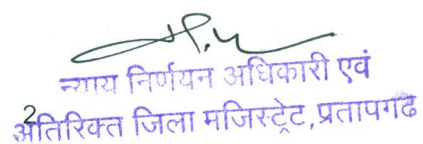 न्याय निर्णयन अधिकारी एवं
2
अतिरिक्त जिला मजिस्ट्रेट,प्रतापगढ